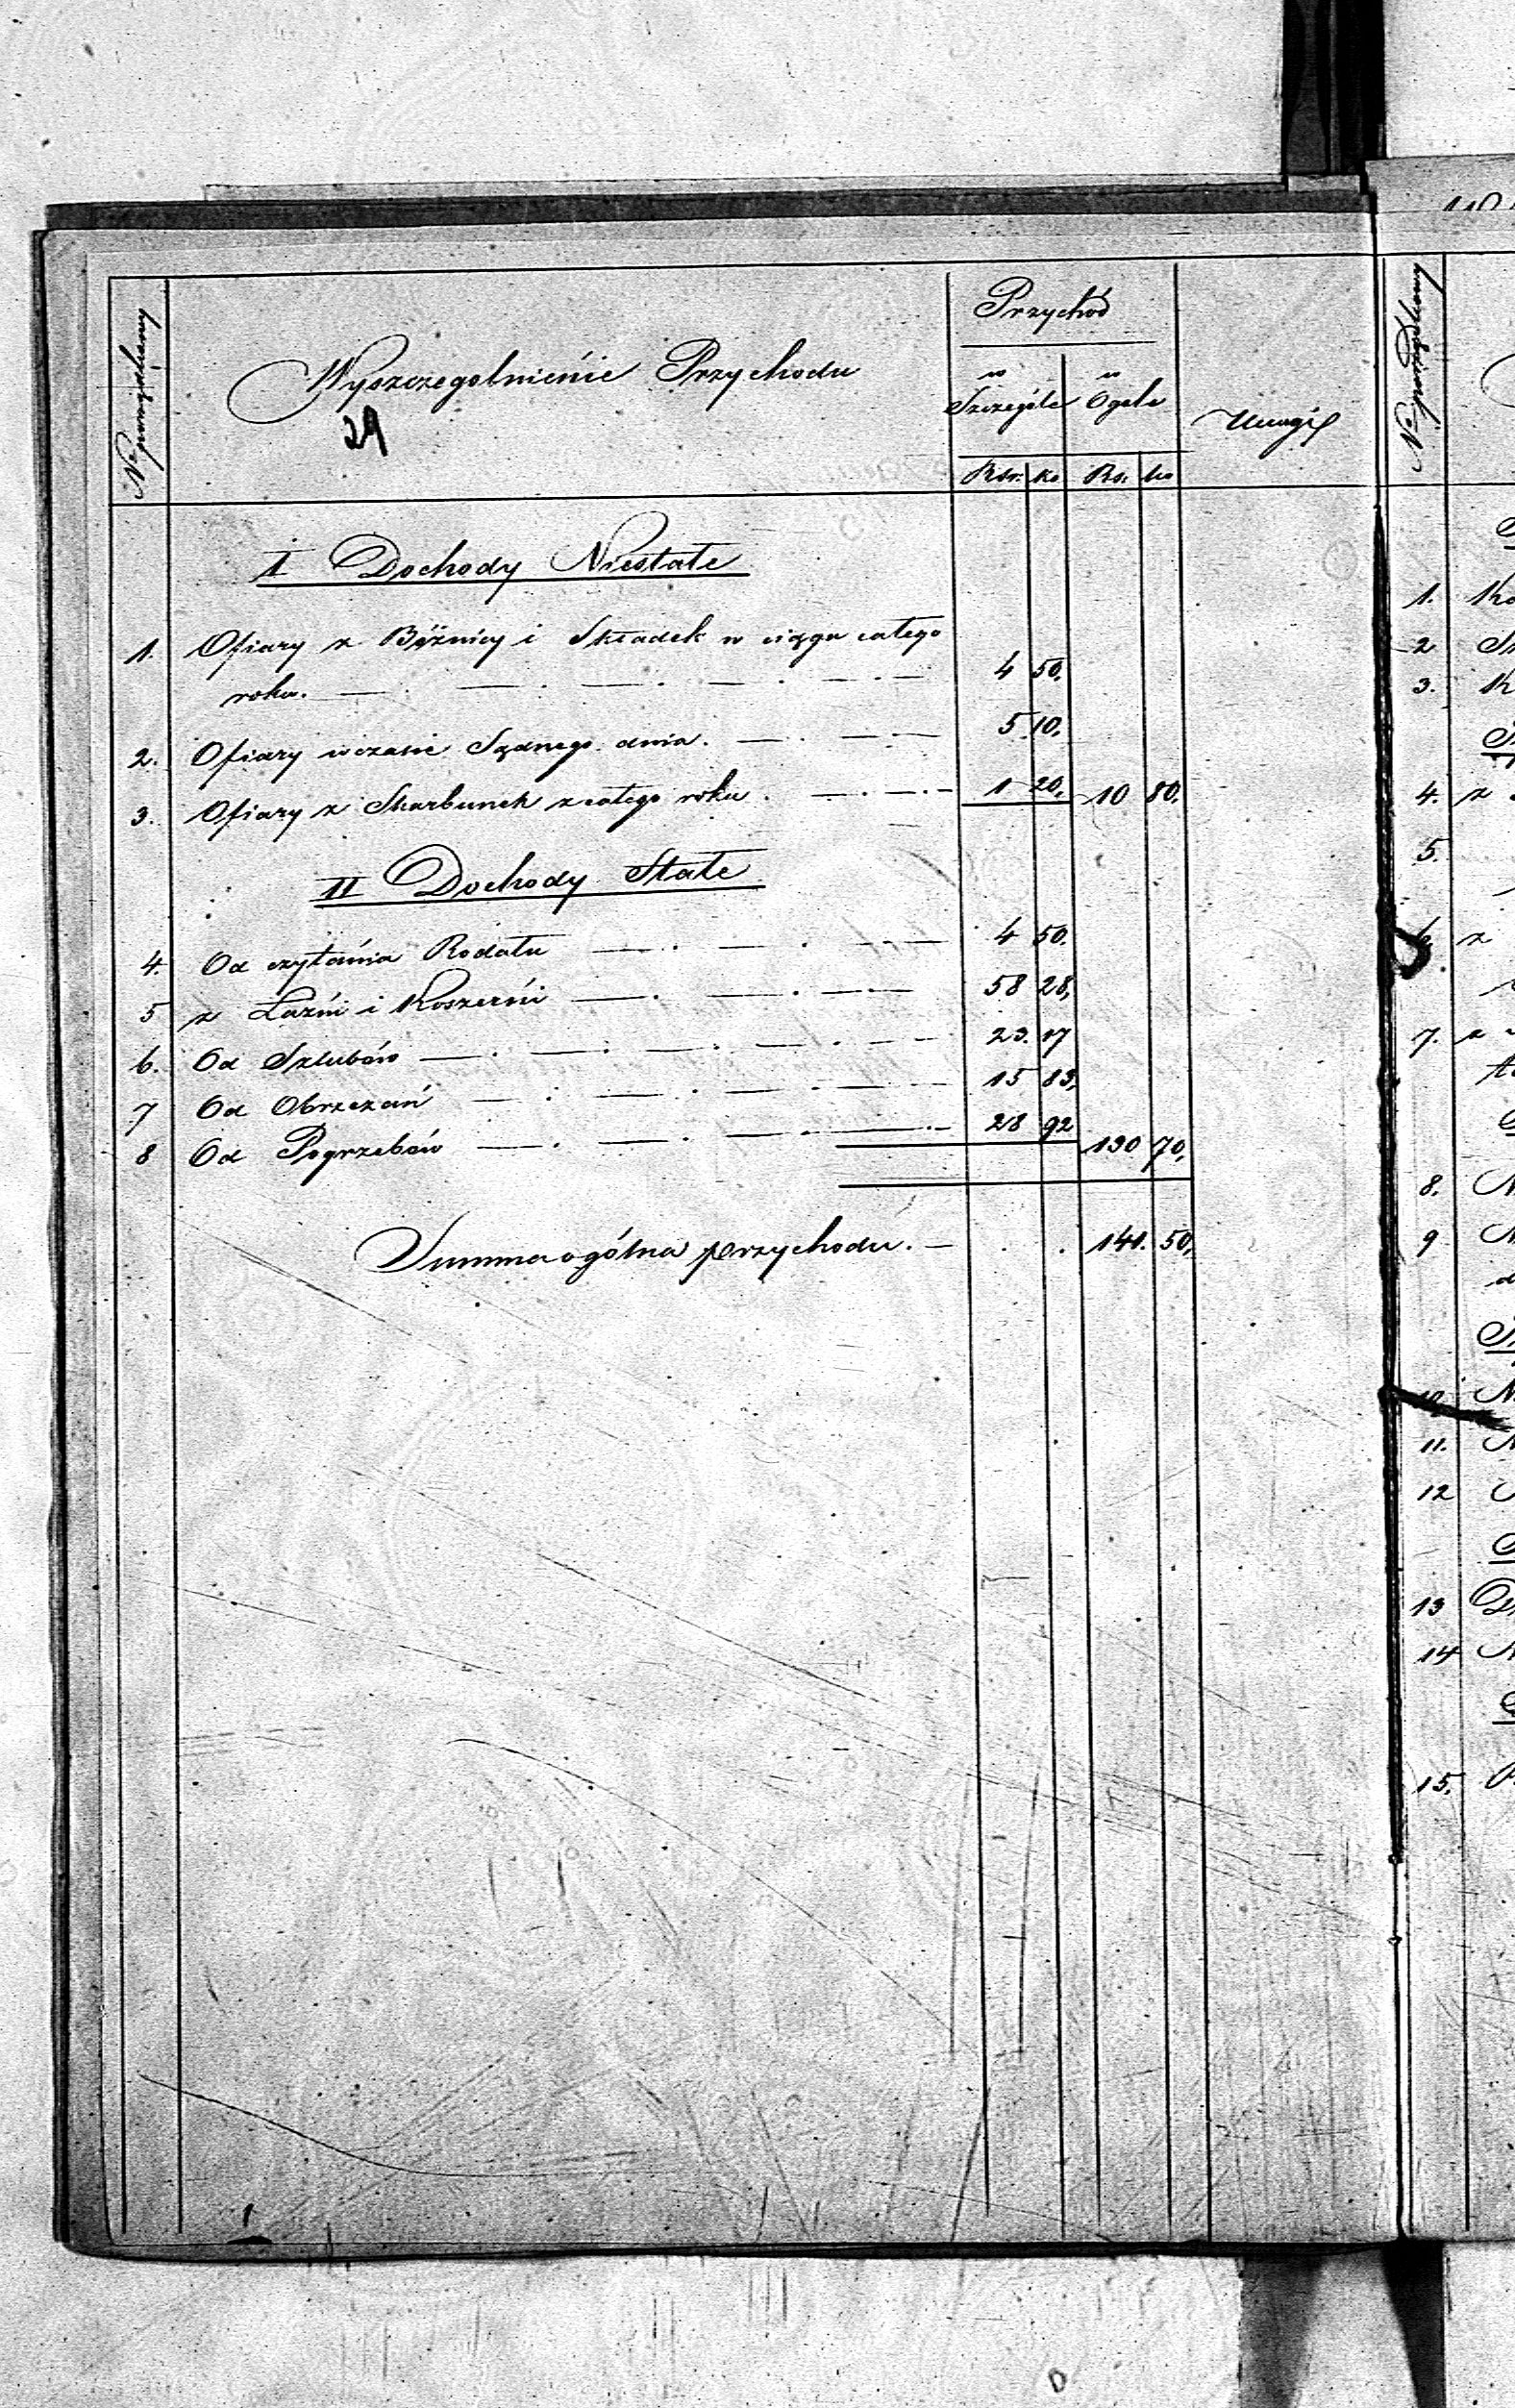 No porządkowy
Wyszczegolnienie Przychodu
29
Przychód
w Szczególe
w Ogóle
Uwagi
Rsr. ko. Rs. ko
I Dochody Niestałe
1. Ofiary z Bóżnicy i Składek w ciągu całego
roku. 4 50.
2. Ofiary wczasie Sądnego dnia. 5 10.
3. Ofiary z Skarbunek z całego roku. 1 20. 10 80.
II Dochody Stałe
4. Od czytania Rodału 4 50.
5 z Łaźni i Koszerni 58 28,
6. Od Szlubów 23. 17
7 Od Obrzezań 15 83,
8 Od Pogrzebów 28 92
130 70,
Summa ogólna przychodu. 141. 50,
No porządkowy
1.
2
3.
4. z
5.
z
7. z
8.
9
11.
12
13
14
15.